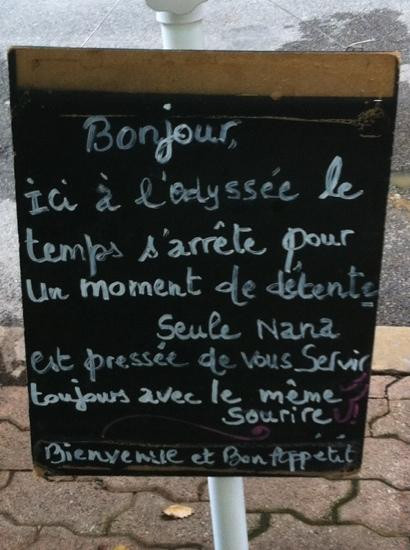 Bonjour,
ici à l'odyssée le
temps s'arrête pour
un moment de détente
Seule Nana
est pressée de vous Servir
toujours avec le même
sourire
Bienvenue et Bon Appétit